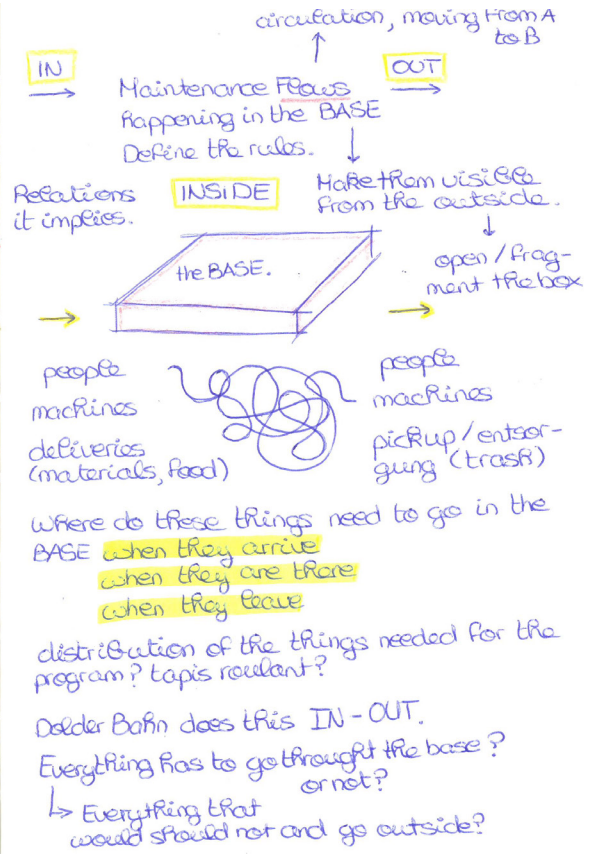 circulation, moving from A
to B
IN
OUT
Maintenance Flows
happening in the BASE
Define the rules.
Relations
it implies.
INSIDE
Make them visible
from the outside.
open / frag-
ment the box
the BASE.
people
machines
deliveries
(materials, food)
people
machines
pickup / entsor-
gung (trash)
where do these things need to go in the
BASE when they arrive
when they are there
when they leave
distribution of the things needed for the
program? tapis roulant?
Dolder Bahn does this IN - OUT.
Everything has to go throught the base?
or not?
↳ Everything that
would should not and go outside?